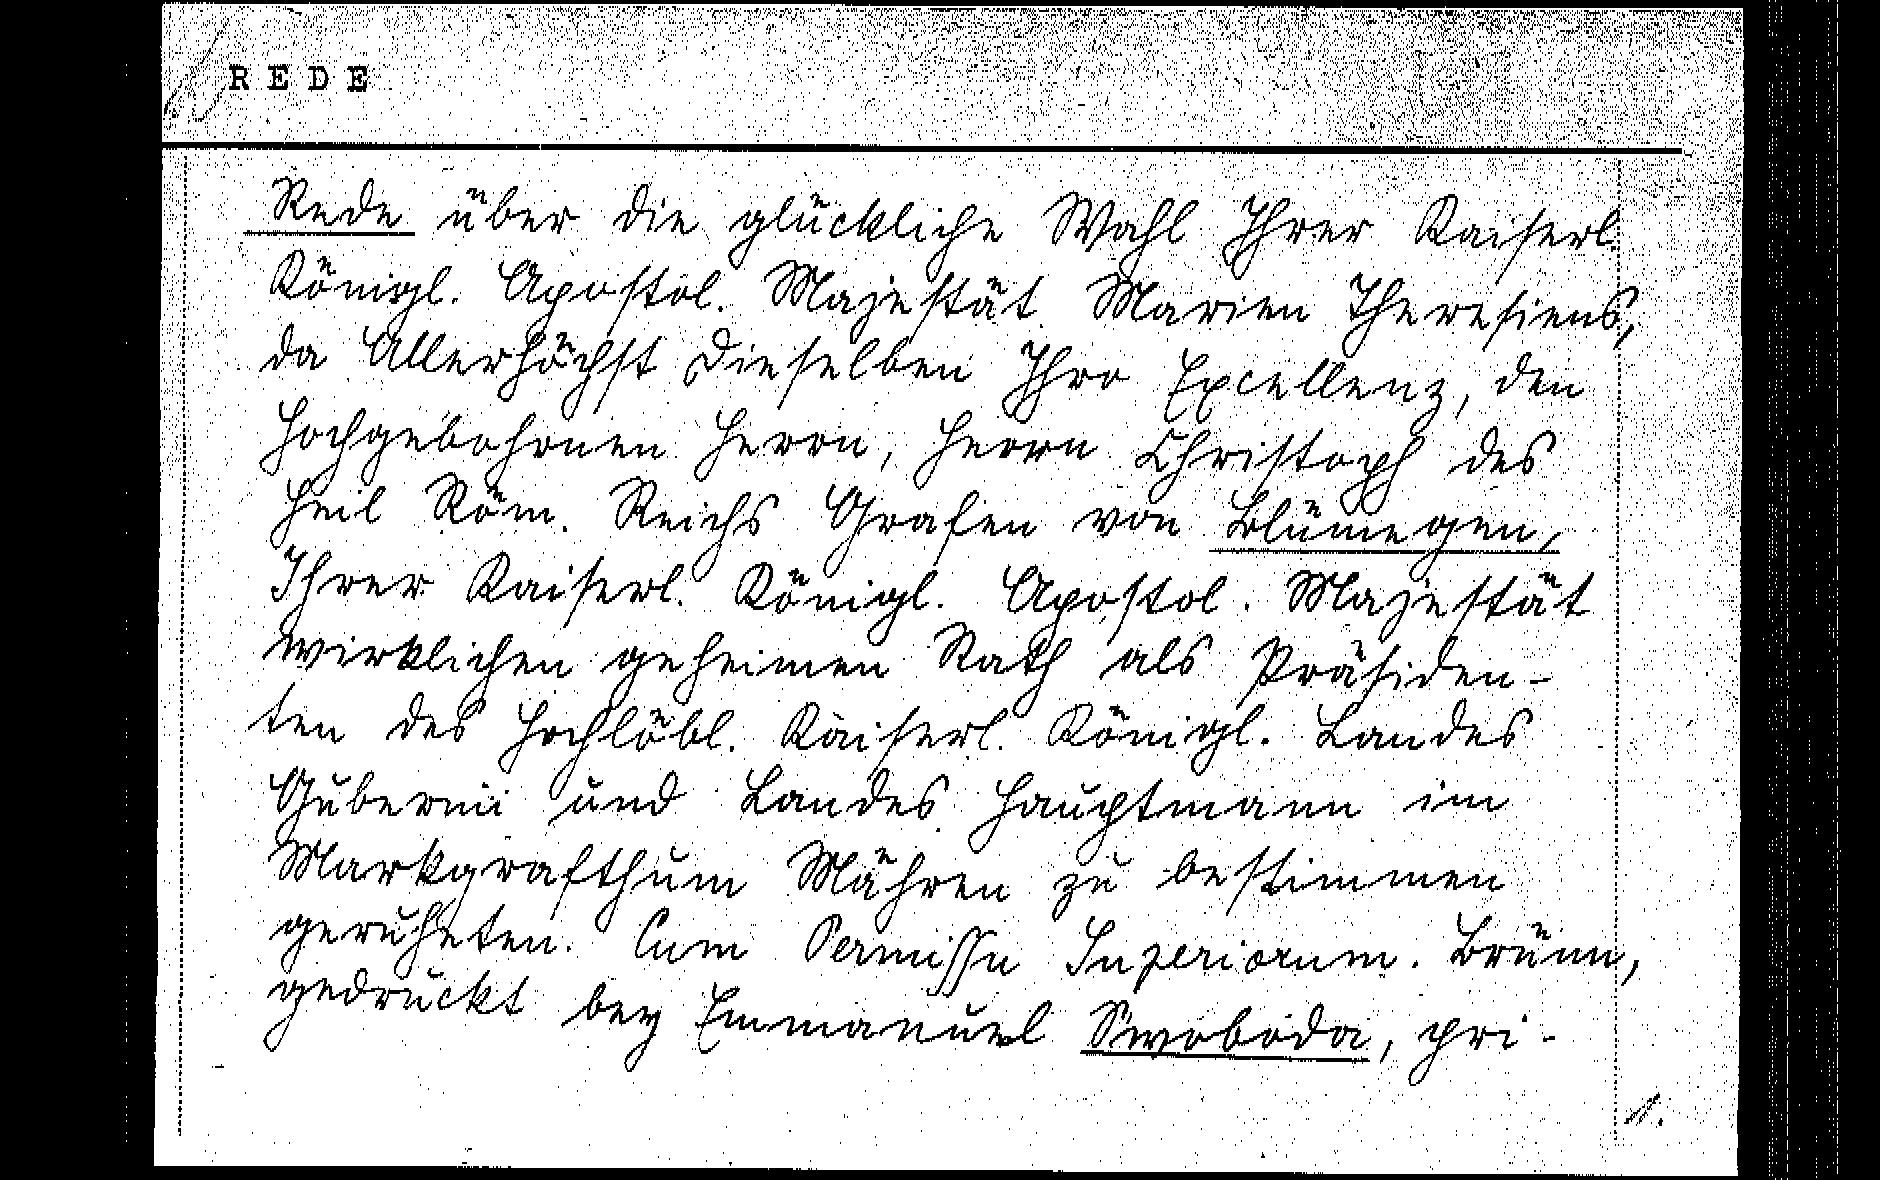 REDE
Rede über die glückliche Wahl Ihrer Kaiserl.
Königl. Apostol. Majestät Marien Theresiens,
da Allerhöchst Dieselben Ihro Excellenz, den
Hochgebohrnen Herrn, Herrn Christoph des
Heil Röm. Reichs Grafen von Blümegen,
Ihrer Kaiserl. Königl. Apostol. Majestät
wirklichen geheimen Rath als Präsiden-
ten des Hochlöbl. Kaiserl. Königl. Landes
Gubernii und Landes Hauptmann im
Markgrafthum Mähren zu bestimmen
geruheten. Cum Permissu Superiorum. Brünn,
gedruckt bey Emmanuel Swoboda, pri-
1.